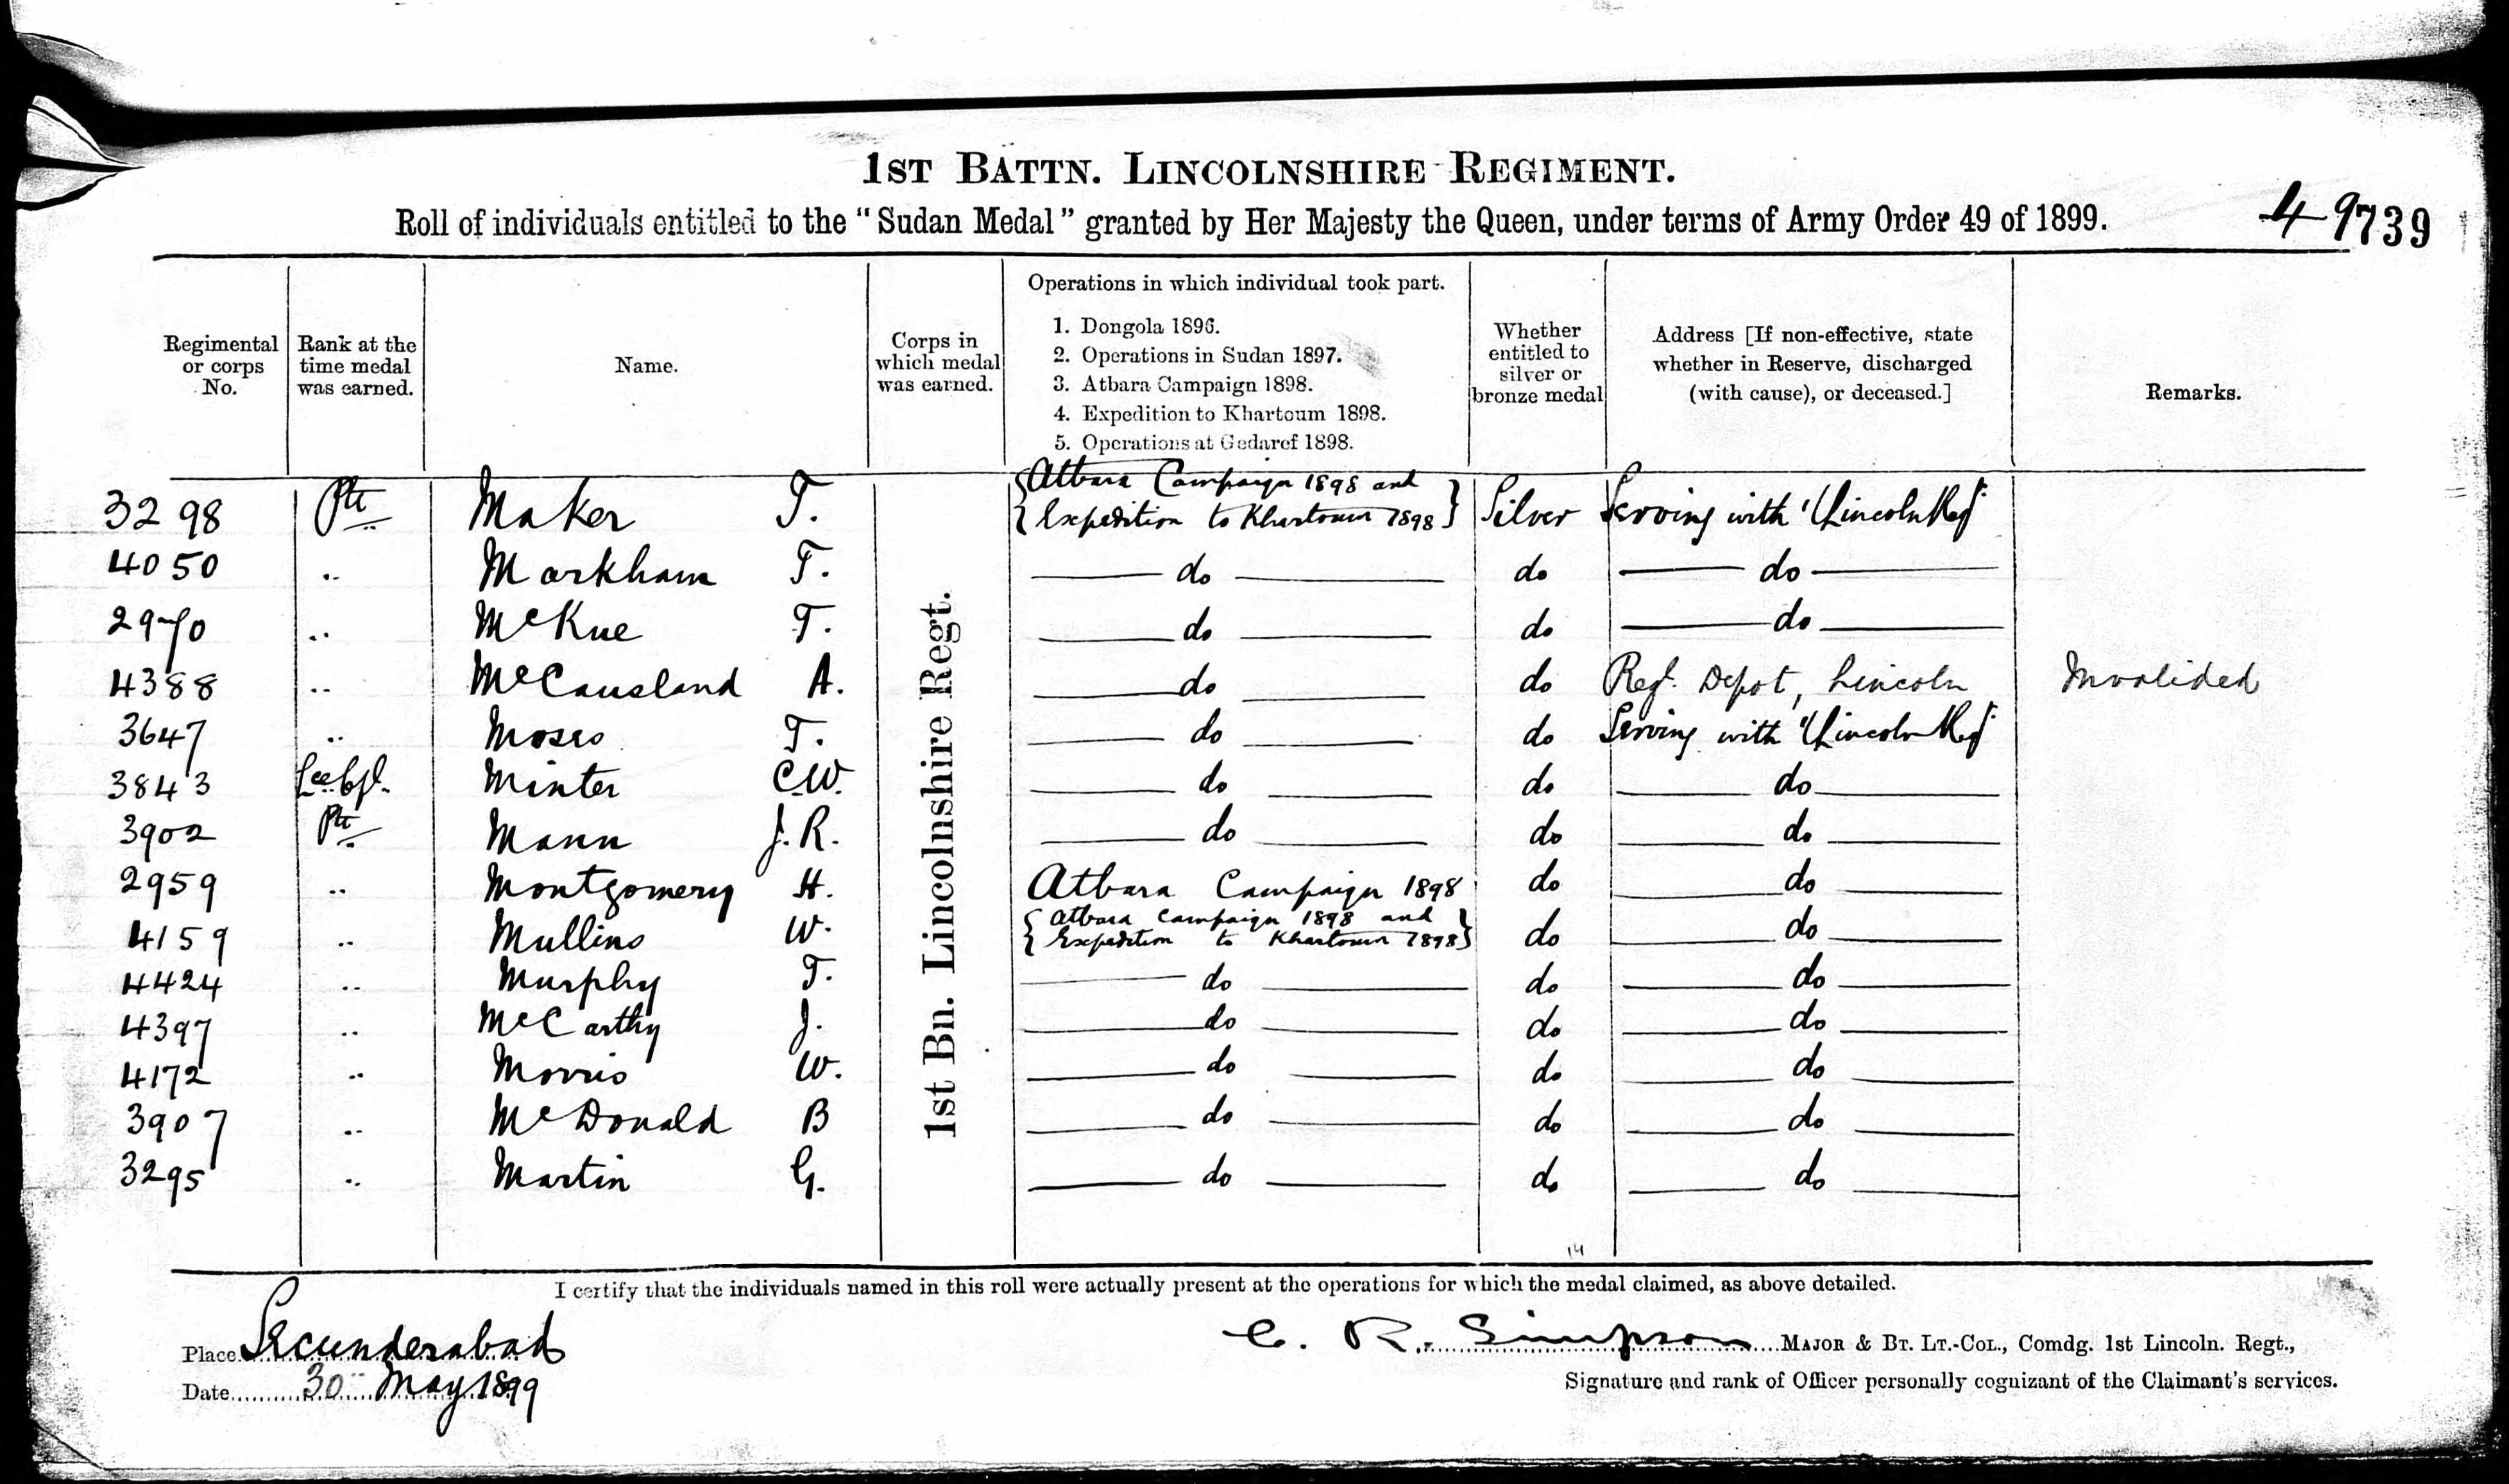 1ST BATTN. LINCOLNSHIRE REGIMENT.
Roll of individuals entitled to the "Sudan Medal" granted by Her Majesty the Queen, under terms of Army Order 49 of 1899.
49739
Regimental or corps No.
Rank at the time medal was earned.
Name.
Corps in which medal was earned.
Operations in which individual took part.
1. Dongola 1896.
2. Operations in Sudan 1897.
3. Atbara Campaign 1898.
4. Expedition to Khartoum 1898.
5. Operations at Gedaref 1898.
Whether entitled to silver or bronze medal
Address [If non-effective, state whether in Reserve, discharged (with cause), or deceased.]
Remarks.
1st Bn. Lincolnshire Regt.
3298 Pte Maker T. {Atbara Campaign 1898 and Expedition to Khartoum 1898} Silver Serving with 1/Lincoln Regt
4050 .. Markham T. do do do
2970 .. McKue T. do do do
4388 .. McCausland A. do do Regt. Depot, Lincoln Invalided
3647 .. Moses T. do do Serving with 1/Lincoln Regt
3843 Lce Cpl. Minter C.W. do do do
3902 Pte Mann J.R. do do do
2959 .. Montgomery H. Atbara Campaign 1898 do do
4159 .. Mullins W. {Atbara Campaign 1898 and Expedition to Khartoum 1898} do do
4424 .. Murphy T. do do do
4397 .. McCarthy J. do do do
4172 .. Morris W. do do do
3907 .. McDonald B do do do
3295 .. Martin G. do do do
14
I certify that the individuals named in this roll were actually present at the operations for which the medal claimed, as above detailed.
Place Secunderabad
C. R. Simpson MAJOR & BT. LT.-COL., Comdg. 1st Lincoln. Regt.,
Date 30 May 1899
Signature and rank of Officer personally cognizant of the Claimant's services.